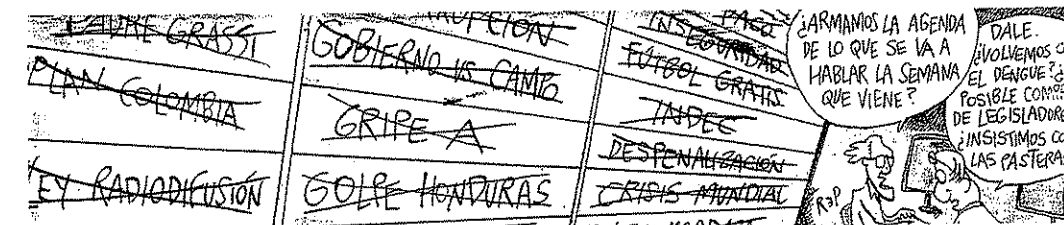 PADRE GRASSI
PLAN COLOMBIA
LEY RADIODIFUSIÓN
GOBIERNO VS. CAMPO
GRIPE A
GOLPE HONDURAS
PACO
INSEGURIDAD
FÚTBOL GRATIS
INDEC
DESPENALIZACIÓN
CRISIS MUNDIAL
¿ARMAMOS LA AGENDA
DE LO QUE SE VA A
HABLAR LA SEMANA
QUE VIENE?
DALE.
¿VOLVEMOS
EL DENGUE?
POSIBLE
DE
¿INSISTIMOS
LAS
REP